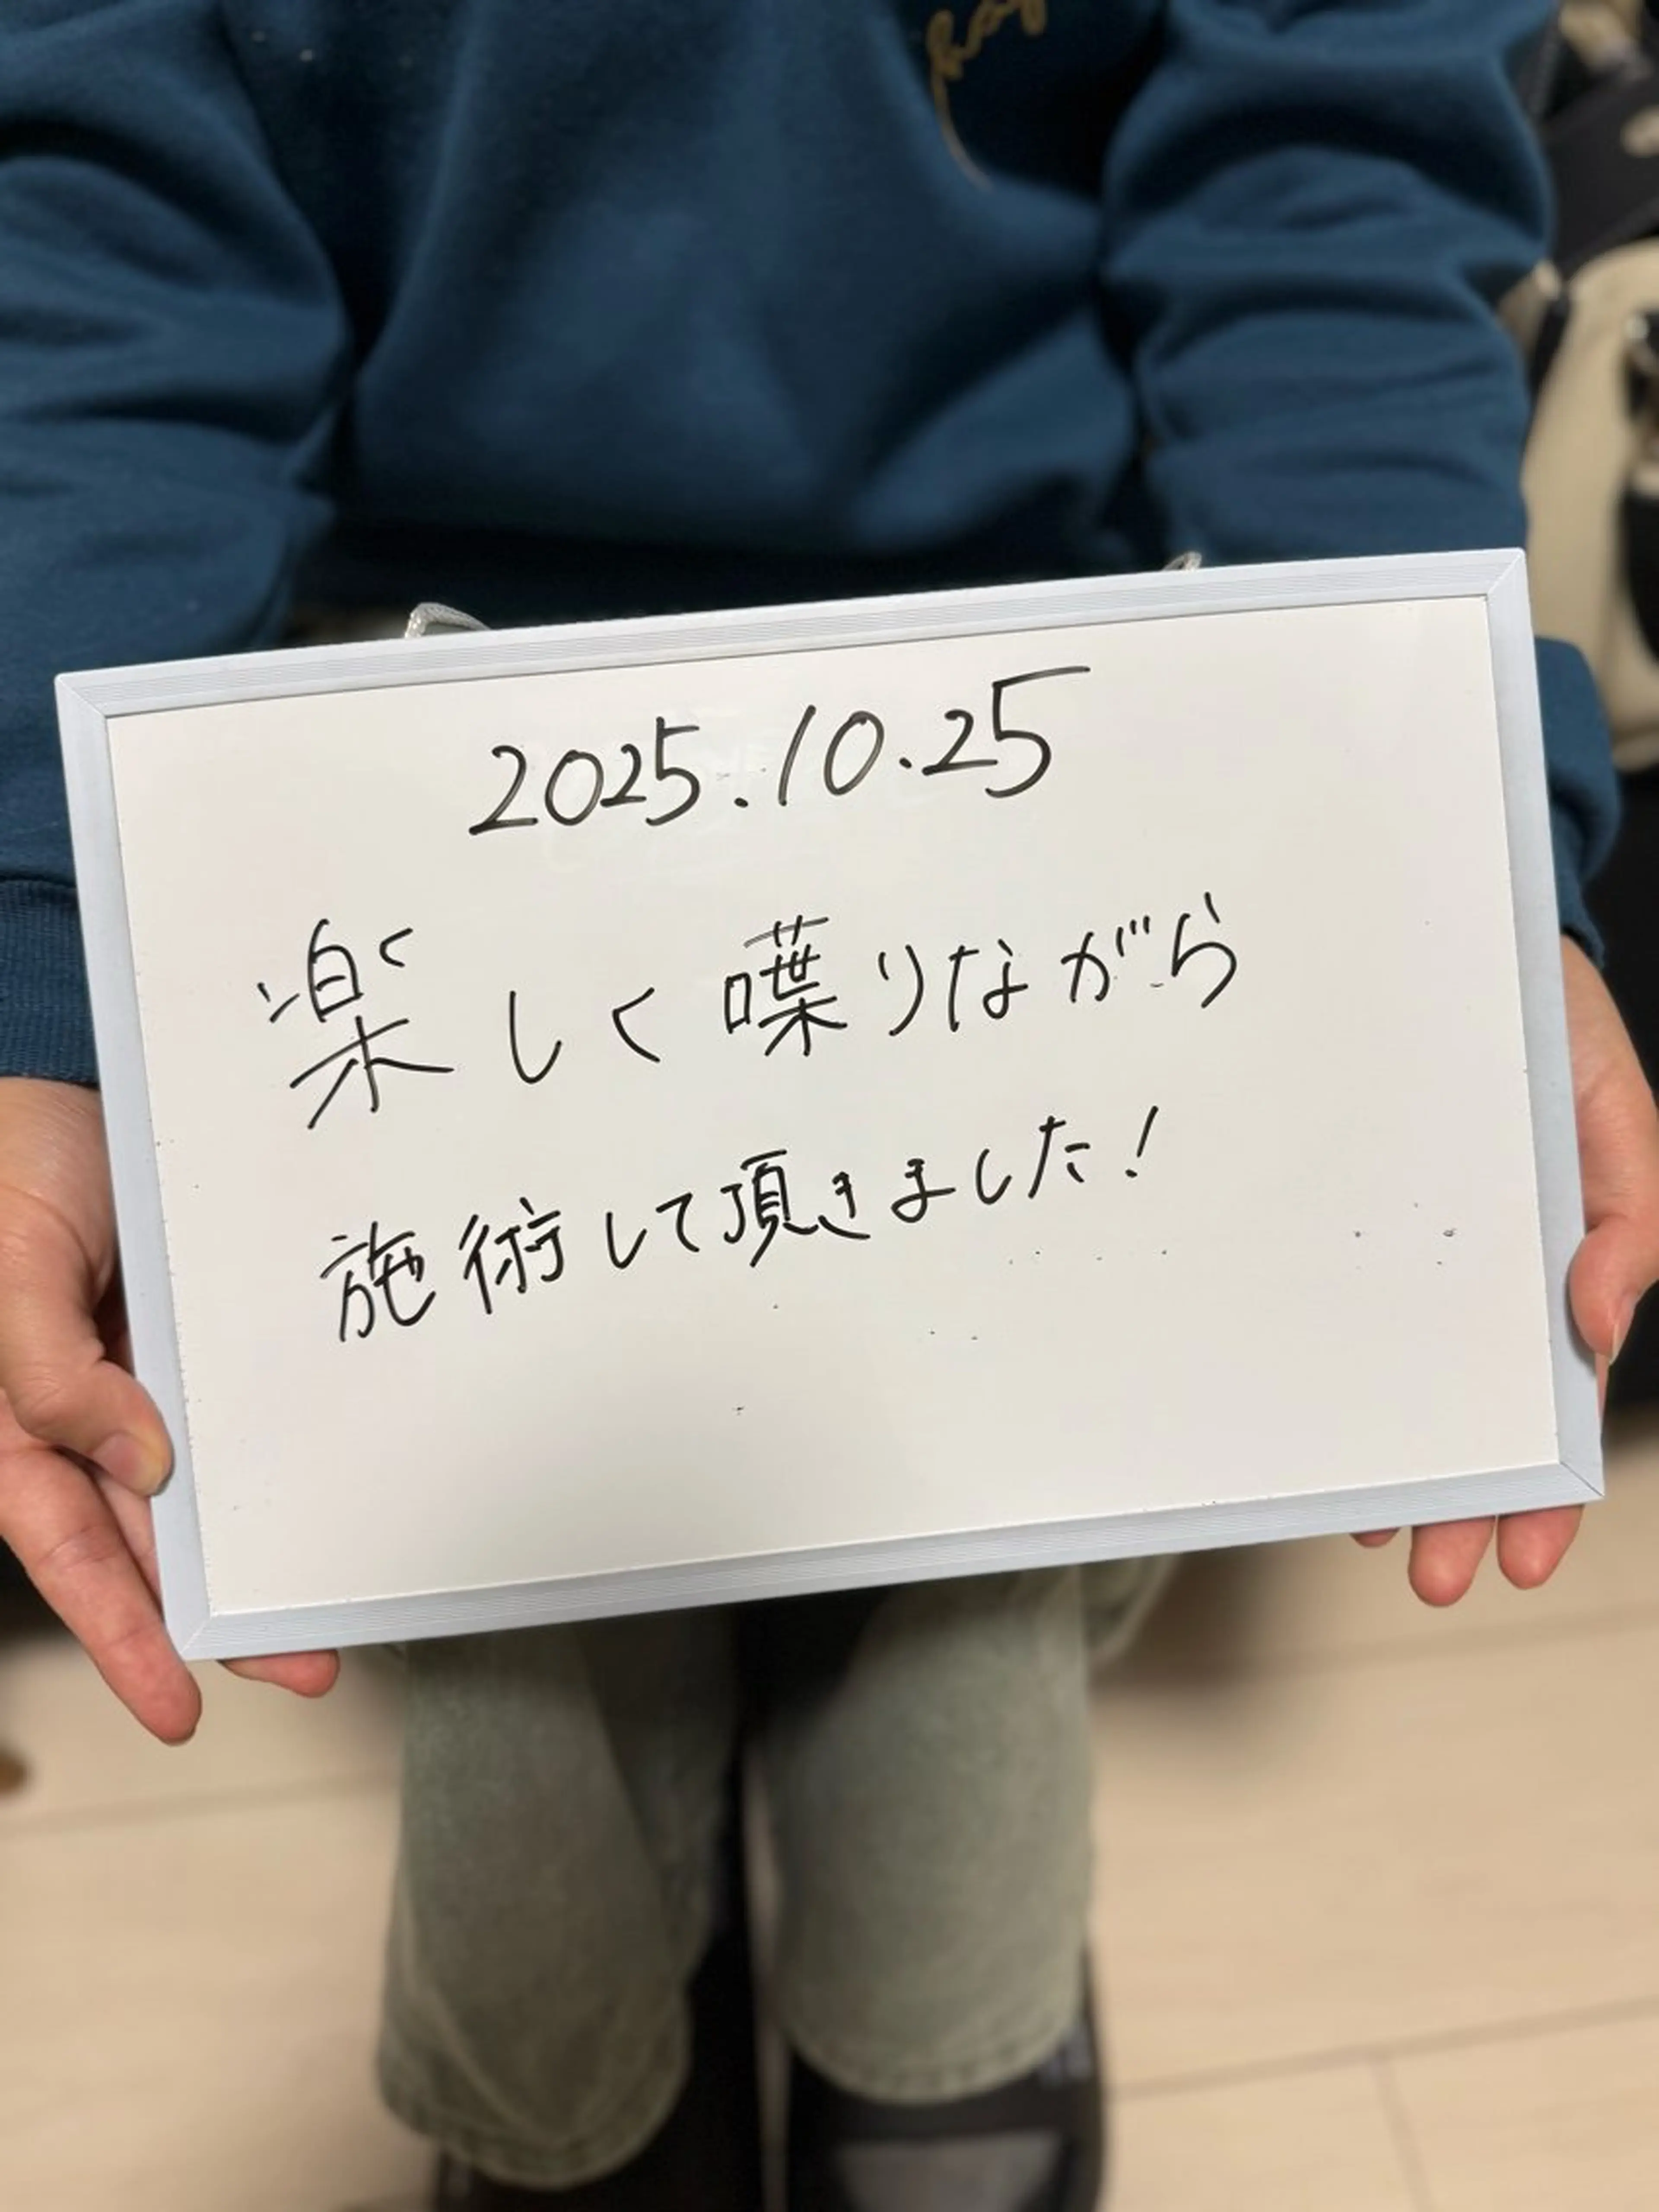 2025.10.25
楽しく喋りながら
施術して頂きました!